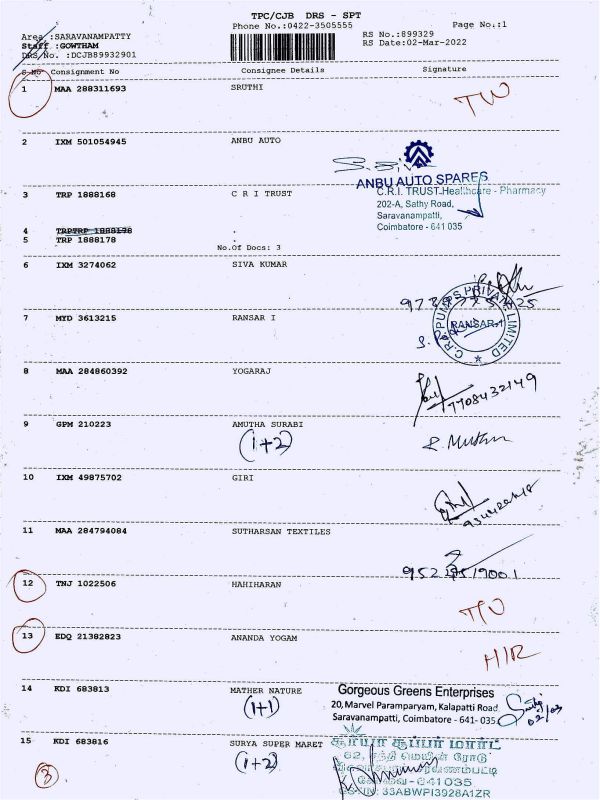 TPC/CJB DRS - SPT
Phone No.:0422-3505555 Page No.:1
Area :SARAVANAMPATTY RS No.:899329
Staff :GOWTHAM RS Date:02-Mar-2022
DRS/No. :DCJB89932901
S.No Consignment No Consignee Details Signature
1 MAA 288311693 SRUTHI
2 IXM 501054945 ANBU AUTO
ANBU AUTO SPARES
3 TRP 1888168 C R I TRUST C.R.I. TRUST Healthcare - Pharmacy
202-A, Sathy Road,
Saravanampatti,
Coimbatore - 641 035
4 .
5 TRP 1888178 .
No.Of Docs: 3
6 IXM 3274062 SIVA KUMAR
C.R.I. PUMPS PRIVATE LIMITED
7 MYD 3613215 RANSAR I RANSAR-1
8 MAA 284860392 YOGARAJ
7708432149
9 GPM 210223 AMUTHA SURABI
(1+2)
10 IXM 49875702 GIRI
11 MAA 284794084 SUTHARSAN TEXTILES
12 TNJ 1022506 HAHIHARAN
13 EDQ 21382823 ANANDA YOGAM
14 KDI 683813 MATHER NATURE Gorgeous Greens Enterprises
(1+1) 20, Marvel Paramparyam, Kalapatti Road
Saravanampatti, Coimbatore - 641- 035 02/03
15 KDI 683816 SURYA SUPER MARET சூர்யா சூப்பர் மார்ட்
(1+2) 62, சத்தி மெயின் ரோடு
கோவை-641035
3 GSTIN: 33ABWPI3928A1ZR